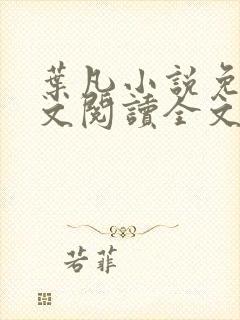 葉凡小說免
文閱讀全文
若菲